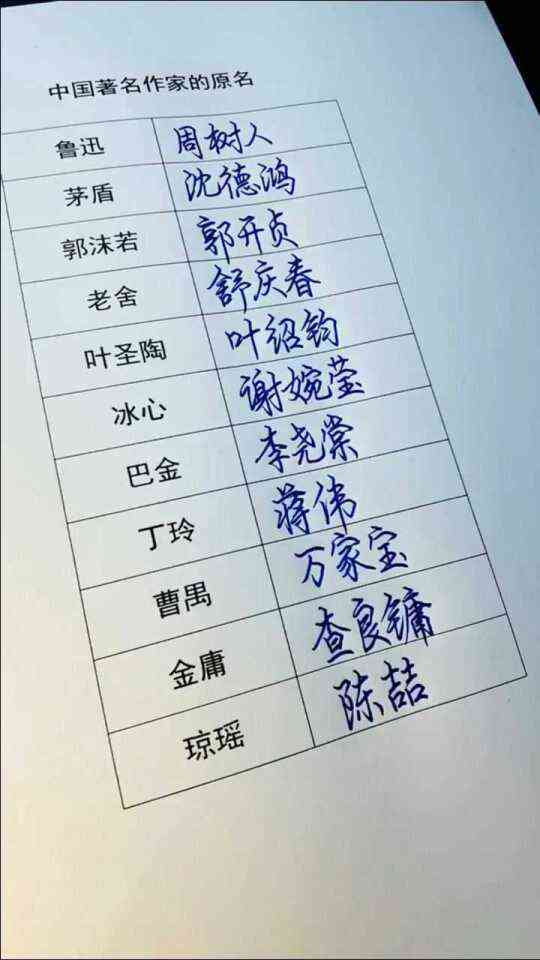 中国著名作家的原名
鲁迅 周树人
茅盾 沈德鸿
郭沫若 郭开贞
老舍 舒庆春
叶圣陶 叶绍钧
冰心 谢婉莹
巴金 李尧棠
丁玲 蒋伟
曹禺 万家宝
金庸 查良镛
琼瑶 陈喆